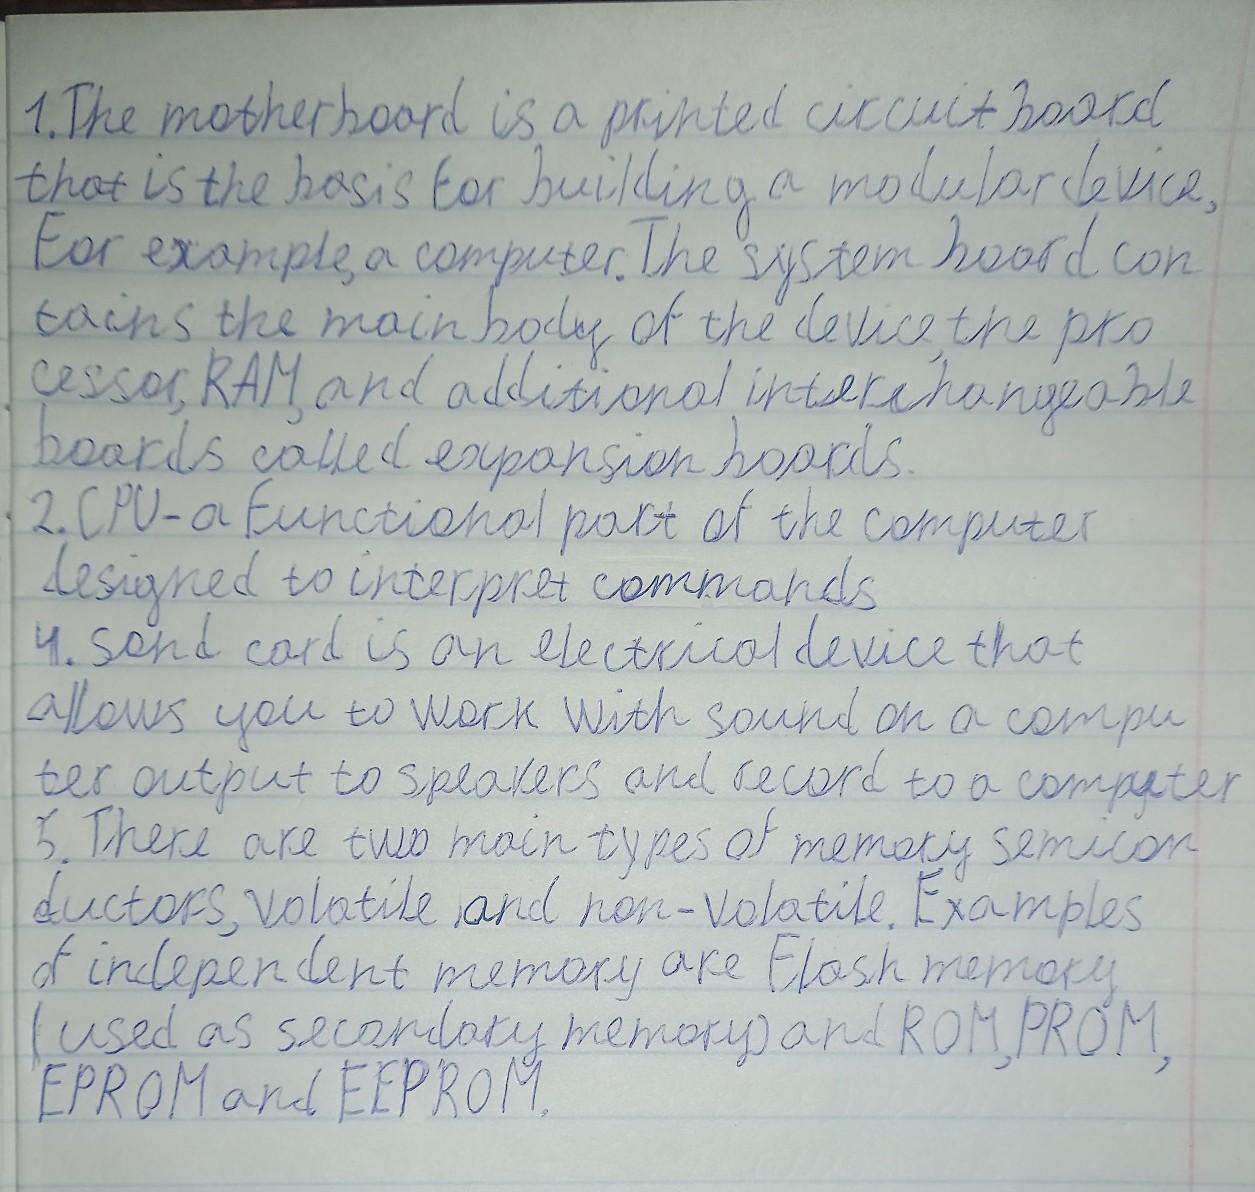 1. The motherboard is a printed circuit board
that is the basis for building a modular device,
For example, a computer. The system board con
tains the main body of the device, the pro
cessor, RAM, and additional interchangeable
boards called expansion boards.
2. CPU - a functional part of the computer
designed to interpret commands
4. Sond card is an electrical device that
allows you to work with sound on a compu
ter output to speakers and record to a computer
5. There are two main types of memory semicon
ductors, volatile and non-volatile. Examples
of independent memory are Flash memory
(used as secondary memory) and ROM, PROM,
EPROM and EEPROM.